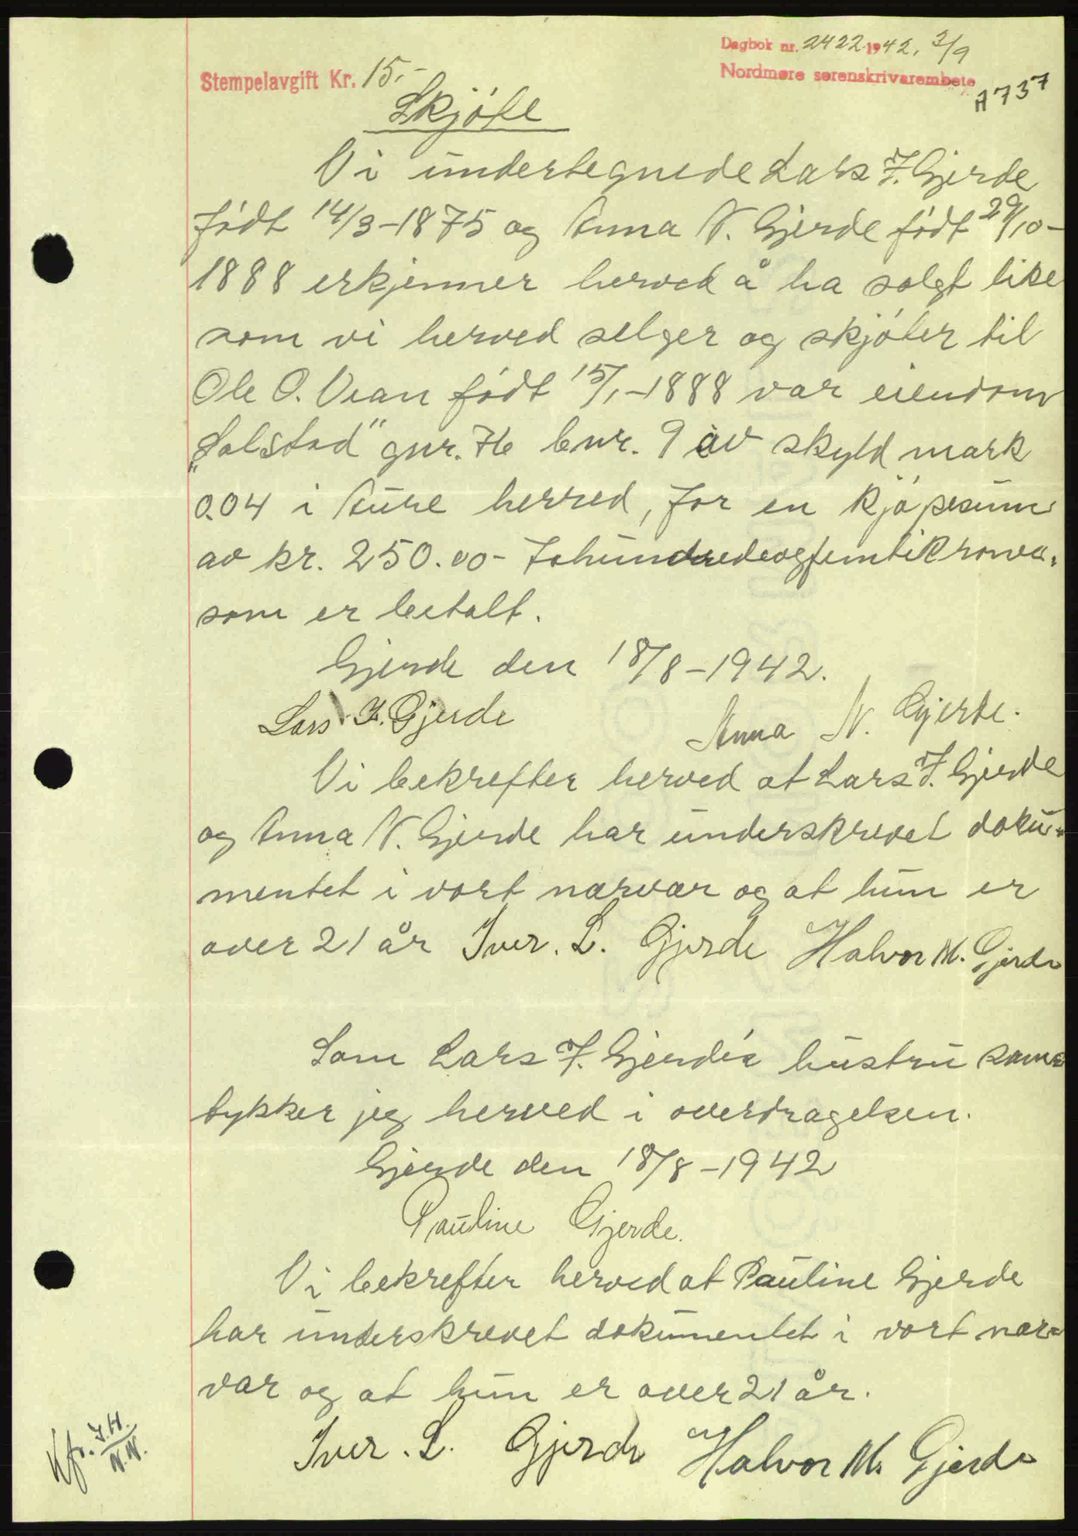 Dagbok nr. 2422 1942. 2/9
Nordmøre sorenskrivarembete
A737
Stempelavgift Kr. 15.-
Skjøte
Vi undertegnede Lars J. Gjerde
født 14/3-1875 og Anna N. Gjerde født 29/10-
1888 erkjenner herved å ha solgt like
som vi herved selger og skjøter til
Ole O. Vean født 15/1-1888 var eiendom
„Solstad" gnr. 76 bnr. 9 av skyld mark
0.04 i Aure herred, for en kjøpesum
av kr. 250.00- Tohundredeogfemtikroner.
som er betalt.
Gjerde den 18/8-1942.
Lars J. Gjerde
Anna N. Gjerde.
Vi bekrefter herved at Lars J. Gjerde
og Anna N. Gjerde har underskrevet doku-
mentet i vort nærvær og at hun er
over 21 år Iver. L. Gjerde Halvor M. Gjerde
Som Lars J. Gjerde's hustru sam-
tykker jeg herved i overdragelsen.
Gjerde den 18/8-1942
Pauline Gjerde.
Vi bekrefter herved at Pauline Gjerde
har underskrevet dokumentet i vort nær-
vær og at hun er over 21 år.
Iver. L. Gjerde Halvor M. Gjerde
Kfr. J.H.
N.N.